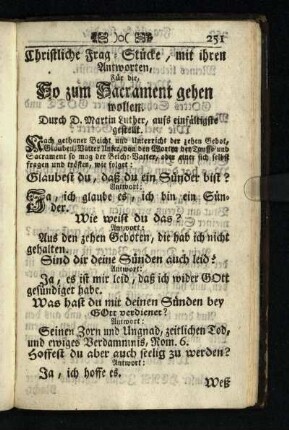 251
Christliche Frag-Stücke, mit ihren
Antworten,
Für die,
So zum Sacrament gehen
wollen.
Durch D. Martin Luther, aufs einfältigste
gestellt.
Nach gethaner Beicht und Unterricht der zehen Gebot,
Glauben, Vatter Unser, von den Worten der Tauff und
Sacrament so mag der Beicht-Vatter, oder einer sich selbst
fragen und trösten, wie folget:
Glaubest du, daß du ein Sünder bist?
Antwort:
Ja, ich glaube es, ich bin ein Sün-
der.
Wie weist du das?
Antwort:
Aus den zehen Geboten, die hab ich nicht
gehalten.
Sind dir deine Sünden auch leid?
Antwort:
Ja, es ist mir leid, daß ich wider GOtt
gesündiget habe.
Was hast du mit deinen Sünden bey
GOtt verdienet?
Antwort:
Seinen Zorn und Ungnad, zeitlichen Tod,
und ewiges Verdammnis, Rom. 6.
Hoffest du aber auch seelig zu werden?
Antwort:
Ja, ich hoffe es.
Weß